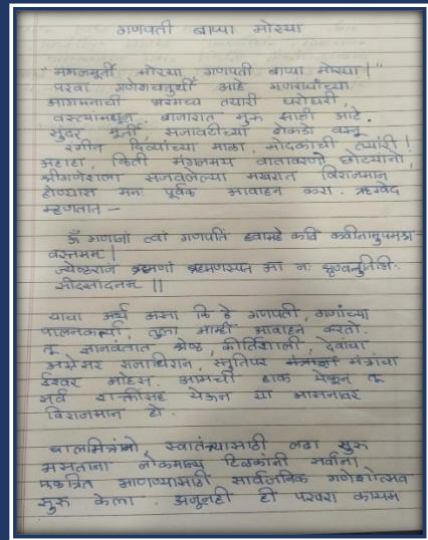 गणपती बाप्पा मोरया
"मंगलमूर्ती मोरया गणपती बाप्पा मोरया!"
परवा गणेशचतुर्थी आहे गणरायांच्या
आगमनाची जय्यत तयारी घरोघरी,
बाजारात सुरु झाली आहे.
सुंदर मूर्ती, सजावटीच्या शेकडो वस्तू
रंगीन दिव्यांच्या माळा, मोदकाची तयारी!
अहाहा, किती मंगलमय वातावरण छोट्यांनो,
श्रीगणेशाला सजवलेल्या मखरात विराजमान
होण्यास मनः पूर्वक आवाहन करा. ऋग्वेद
म्हणतात -
ॐ गणानां त्वां गणपतिं हवामहे कविं कवीनामुपमश्र
वस्तमम।
ज्येष्ठराजं ब्रह्मणां ब्रह्मणस्पत आ नः श्रृण्वन्नुतिभिः
सीदसादनम् ||
याचा अर्थ असा कि हे गणपती, गणांच्या
पालनकर्त्या, तुला आम्ही आवाहन करतो.
तू ज्ञानवंतात श्रेष्ठ, कीर्तिशाली, देवांचा
अग्रेसर राजाधिराज, स्तुतिपर मंत्रांचा
ईश्वर आहेस. आमची हाक ऐकून तू
सर्व शक्तींसह येऊन या आसनावर
विराजमान हो.
बालमित्रांनो, स्वातंत्र्यासाठी लढा सुरु
असताना लोकमान्य टिळकांनी सर्वांना
एकत्रित आणण्यासाठी सार्वजनिक गणेशोत्सव
सुरु केला. अजूनही ही परंपरा कायम